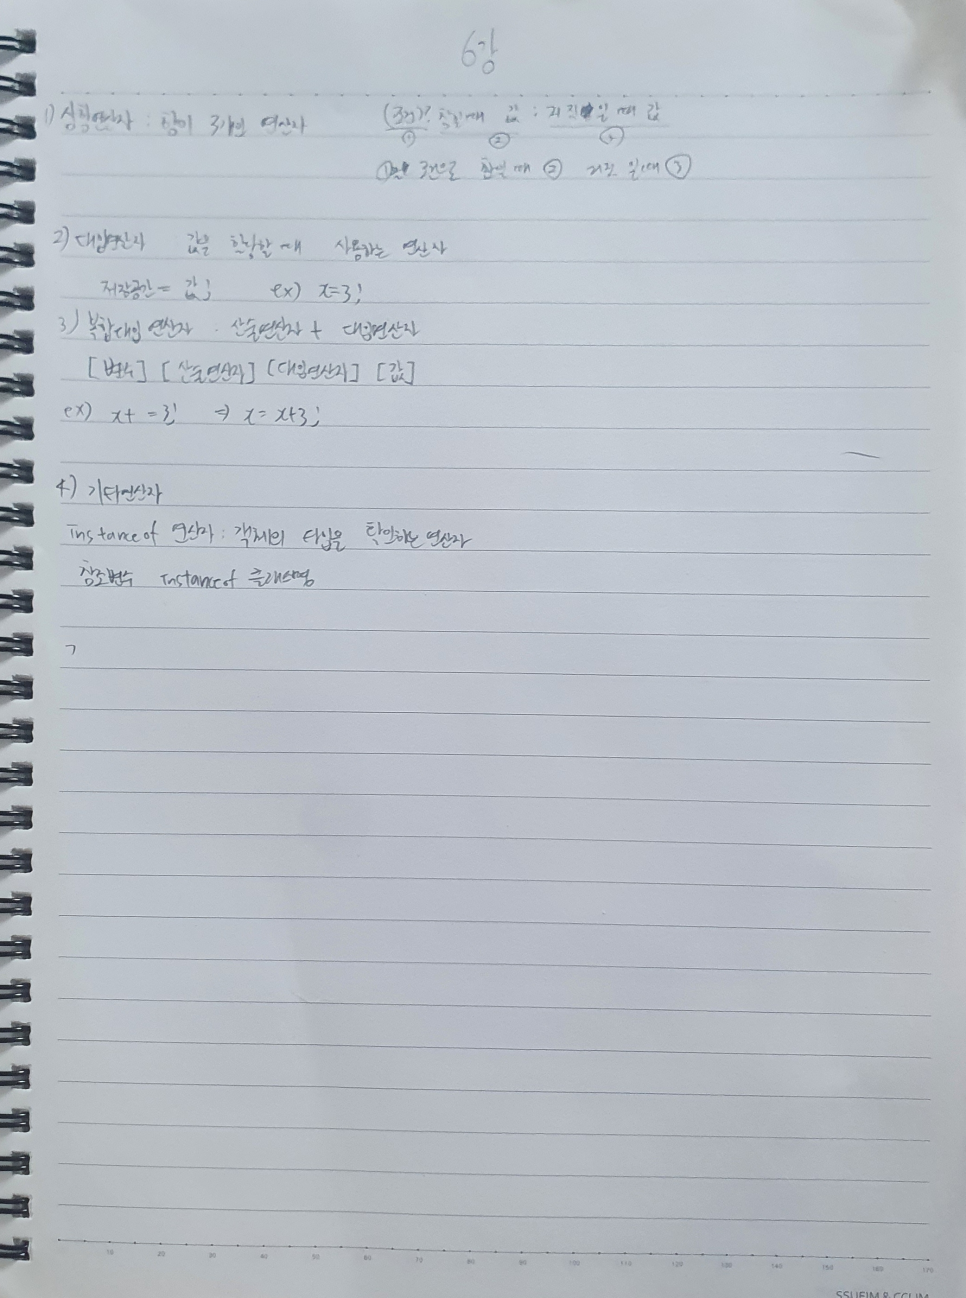 6강
1) 삼항연산자 : 항이 3개인 연산자 (조건)? 참일때 값 : 거짓일 때 값
① ② ③
조건으로 참일때 ② 거짓 일때 ③
2) 대입연산자 값을 할당할 때 사용하는 연산자
저장공간 = 값; ex) x=3;
3) 복합대입 연산자 : 산술연산자 + 대입연산자
[변수] [산술연산자] [대입연산자] [값]
ex) x+ =3; ⇒ x= x+3;
4) 기타연산자
instance of 연산자 : 객체의 타입을 확인하는 연산자
참조변수 instance of 클래스명
ㄱ
10 20 30 40 50 60 70 80 90 100 110 120 130 140 150 160 170